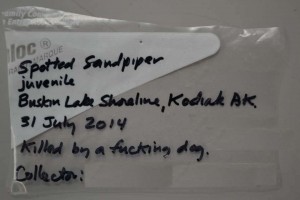 loc
MARQUE
Spotted Sandpiper
juvenile
Buskin Lake Shoreline, Kodiak AK.
31 July 2014
Killed by a fucking dog.
Collector: